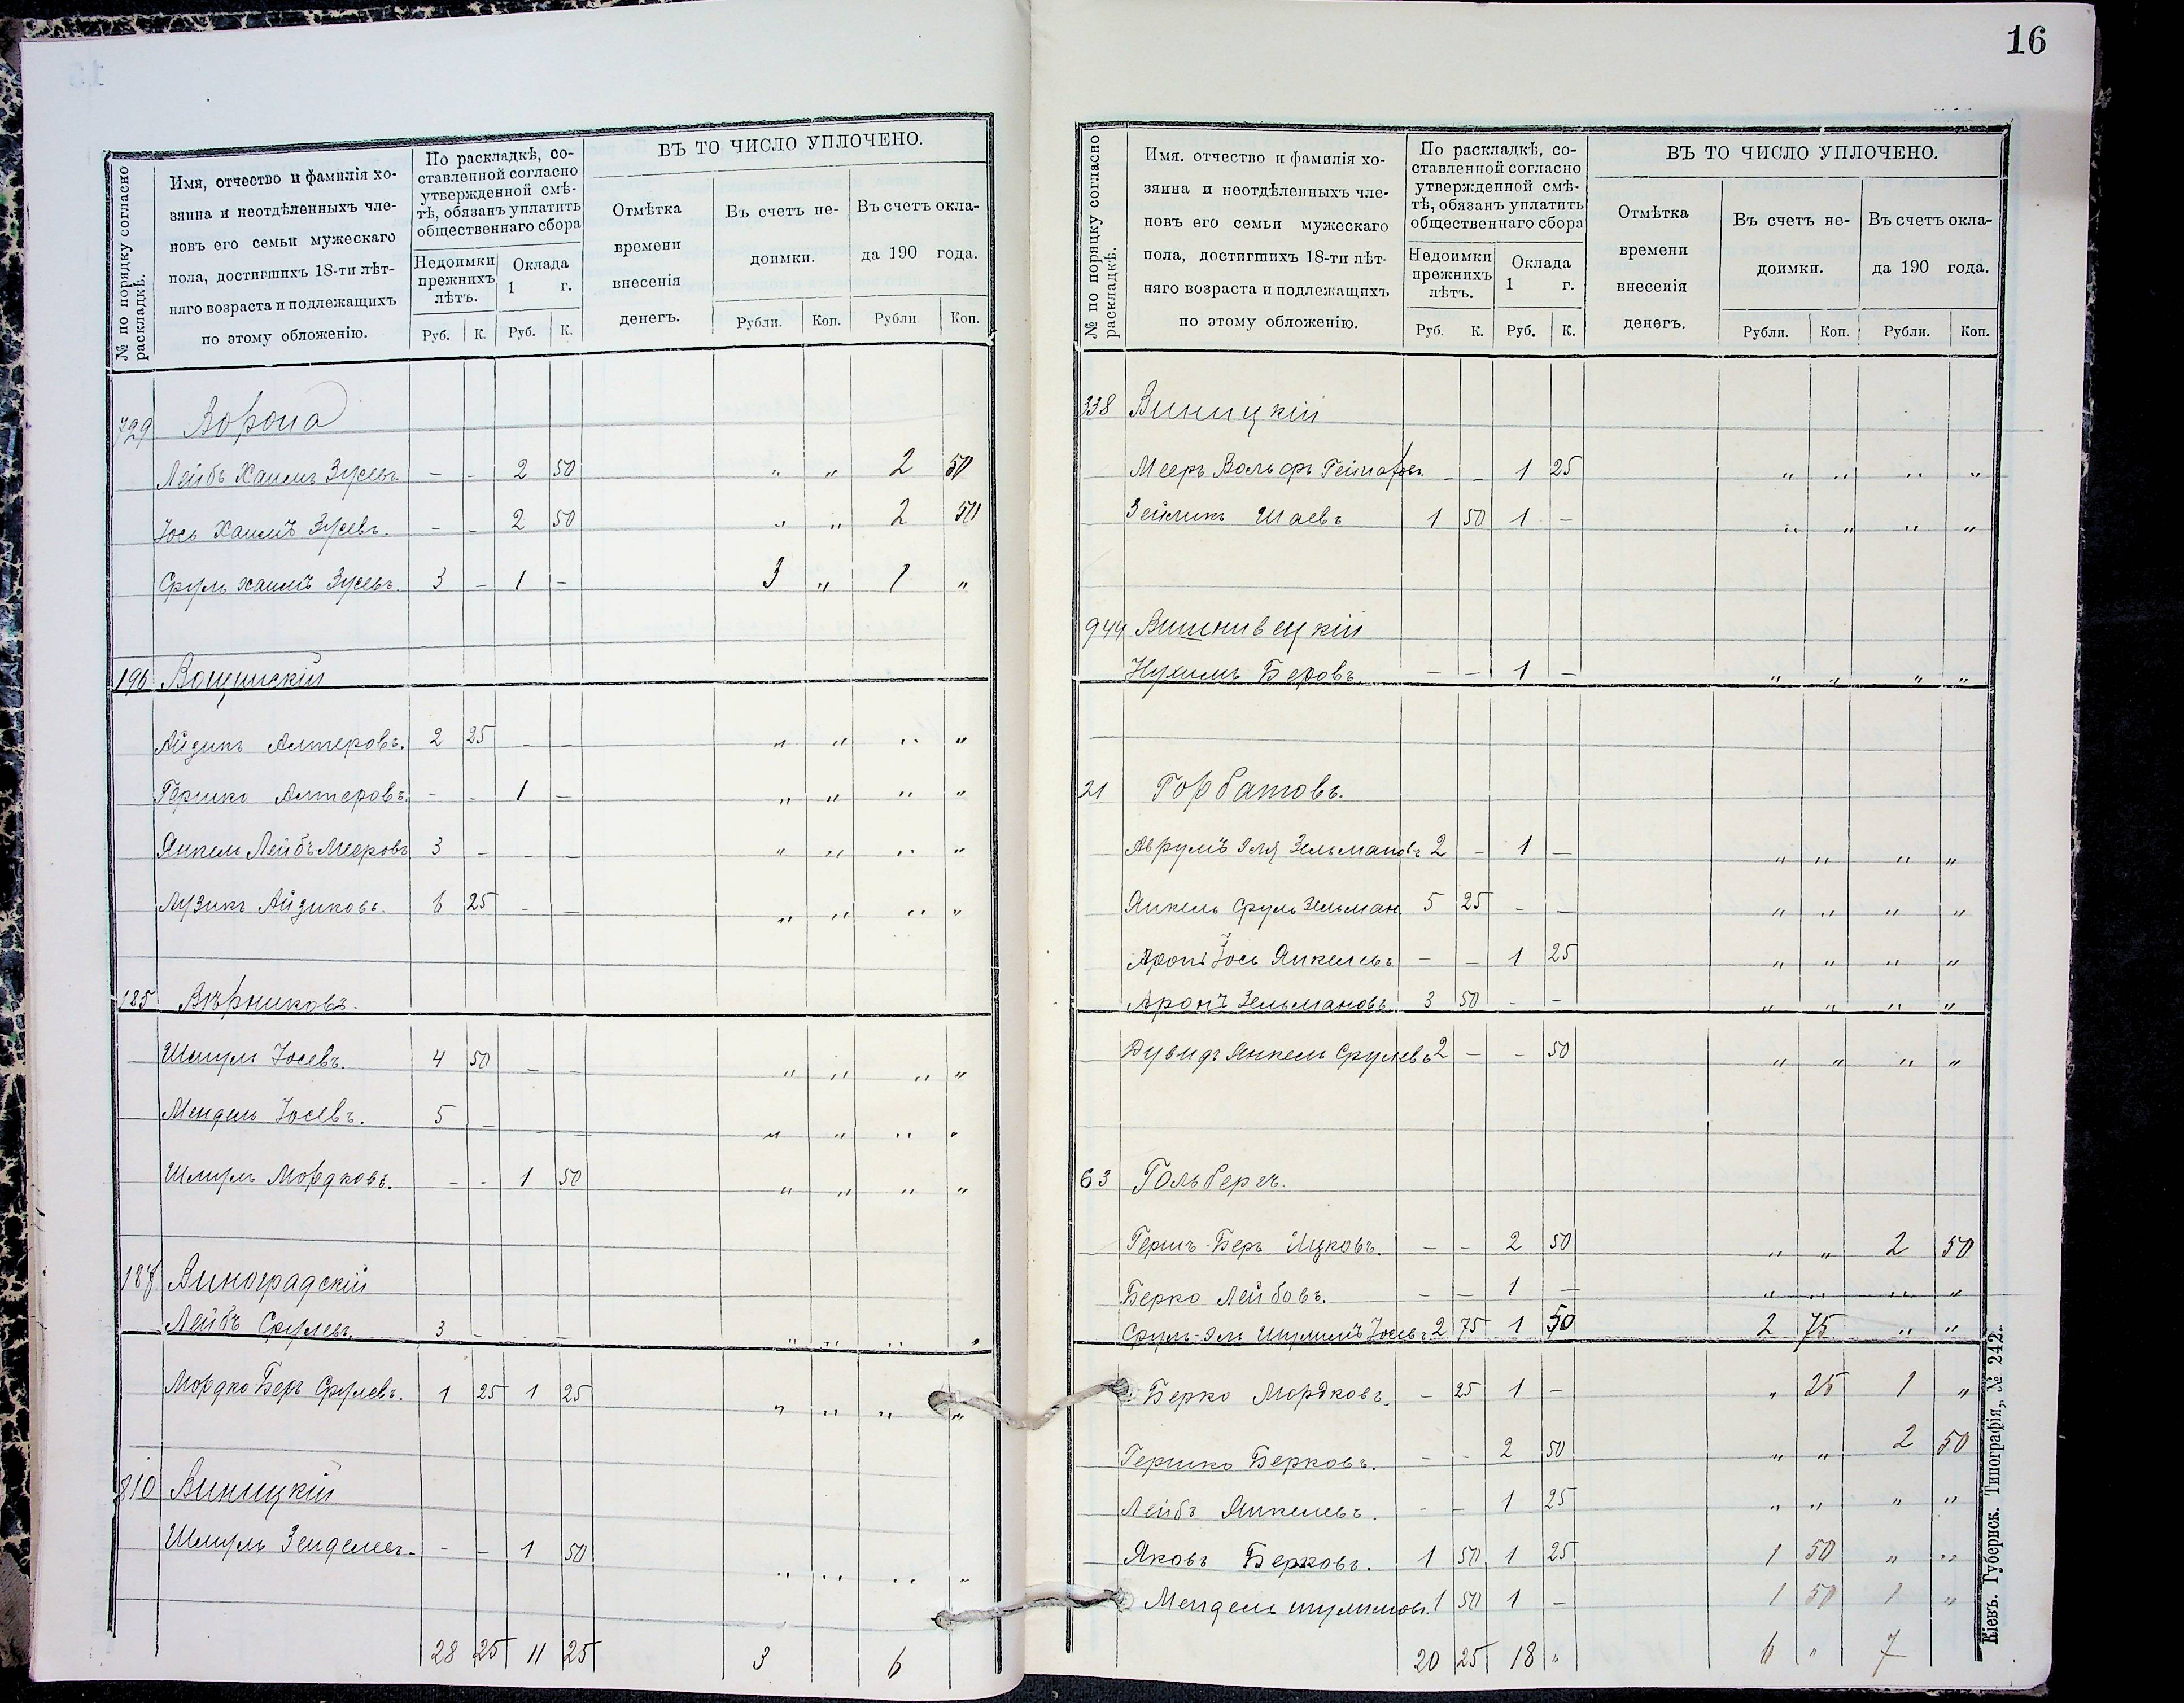 16
№ по порядку согласно раскладкѣ.
Имя, отчество и фамилія хо-
зяина и неотдѣленныхъ чле-
новъ его семьи мужескаго
пола, достигшихъ 18-ти лѣт-
няго возраста и подлежащихъ
по этому обложенію.
По раскладкѣ, со-
ставленной согласно
утвержденной смѣ-
тѣ, обязанъ уплатить
общественнаго сбора
Недоимки прежнихъ лѣтъ.
Оклада 1 г.
Руб. К. Руб. К.
ВЪ ТО ЧИСЛО УПЛОЧЕНО.
Отмѣтка времени внесенія денегъ.
Въ счетъ не-доимки.
Въ счетъ окла-да 190 года.
Рубли. Коп. Рубли Коп.
729 Ворона
Лейбъ Хаимъ Зусевъ. - - 2 50 " " 2 50
Іось Хаимъ Зусевъ. - - 2 50 " " 2 50
Сруль Хаимъ Зусевъ. 3 - 1 - 3 " 1 "
196 Вощинскій
Айзикъ Алтеровъ. 2 25 - - " " " "
Гершко Алтеровъ. - - 1 - " " " "
Янкель Лейбъ Мееровъ 3 - - - " " " "
Лузикъ Айзиковъ. 6 25 - - " " " "
185 Вѣрниковъ.
Шмуль Іосевъ. 4 50 - - " " " "
Мендель Іосевъ. 5 - - - " " " "
Шмуль Мордковъ. - - 1 50 " " " "
187. Виноградскій
Лейбъ Срулевъ. 3 - - - " " " "
Мордко Беръ Срулевъ. 1 25 1 25 " " " "
810 Виницкій
Шмуль Зенделевъ. - - 1 50 " " " "
28 25 11 25 3 6
№ по порядку согласно раскладкѣ.
Имя. отчество и фамилія хо-
зяина и неотдѣленныхъ чле-
новъ его семьи мужескаго
пола, достигшихъ 18-ти лѣт-
няго возраста и подлежащихъ
по этому обложенію.
По раскладкѣ, со-
ставленной согласно
утвержденной смѣ-
тѣ, обязанъ уплатить
общественнаго сбора
Недоимки прежнихъ лѣтъ.
Оклада 1 г.
Руб. К. Руб. К.
ВЪ ТО ЧИСЛО УПЛОЧЕНО.
Отмѣтка времени внесенія денегъ.
Въ счетъ не-доимки.
Въ счетъ окла-да 190 года.
Рубли. Коп. Рубли. Коп.
338 Виницкій
Мееръ Вольфъ - - 1 25 " " " "
Зейликъ Шаевъ 1 50 1 - " " " "
949 Вишнивецкій
Нухимъ Беровъ. - - 1 - " " " "
21 Горбатовъ.
Аврумъ Эля Зельмановъ 2 - 1 - " " " "
Янкель Сруль Зельман 5 25 - - " " " "
Аронъ Іось Янкелевъ - - 1 25 " " " "
Аронъ Зельмановъ 3 50 - - " " " "
Дувидъ Янкель Срулевъ 2 - - 50 " " " "
63 Гольбергъ.
Гершъ-Беръ Ицковъ. - - 2 50 " " 2 50
Берко Лейбовъ. - - 1 - " " " "
Сруль-Эль Шулимъ Іосевъ 2 75 1 50 2 75 " "
Берко Мордковъ. - 25 1 - " 25 1 "
Гершко Берковъ. - - 2 50 " " 2 50
Лейбъ Янкелевъ. - - 1 25 " " " "
Яковъ Берковъ. 1 50 1 25 1 50 " "
Мендель Шулимовъ. 1 50 1 - 1 50 1 "
20 25 18 " 6 " 7
Кіевъ. Губернск. Типографія, № 242.